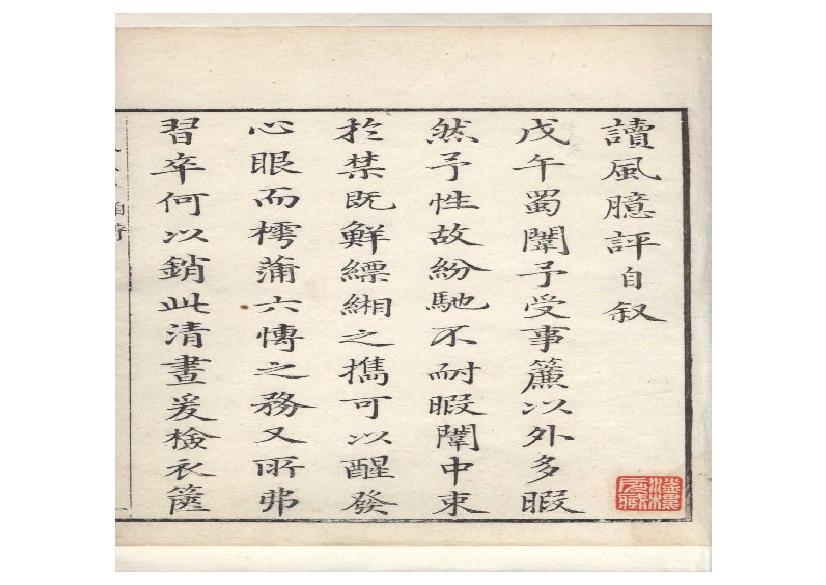 讀風臆評自叙
戊午蜀闈予受事簾以外多暇
然予性故紛馳不耐暇闈中束
於禁既鮮縹緗之携可以醒發
心眼而樗蒲六愽之務又所弗
習卒何以銷此清晝爰檢衣篋